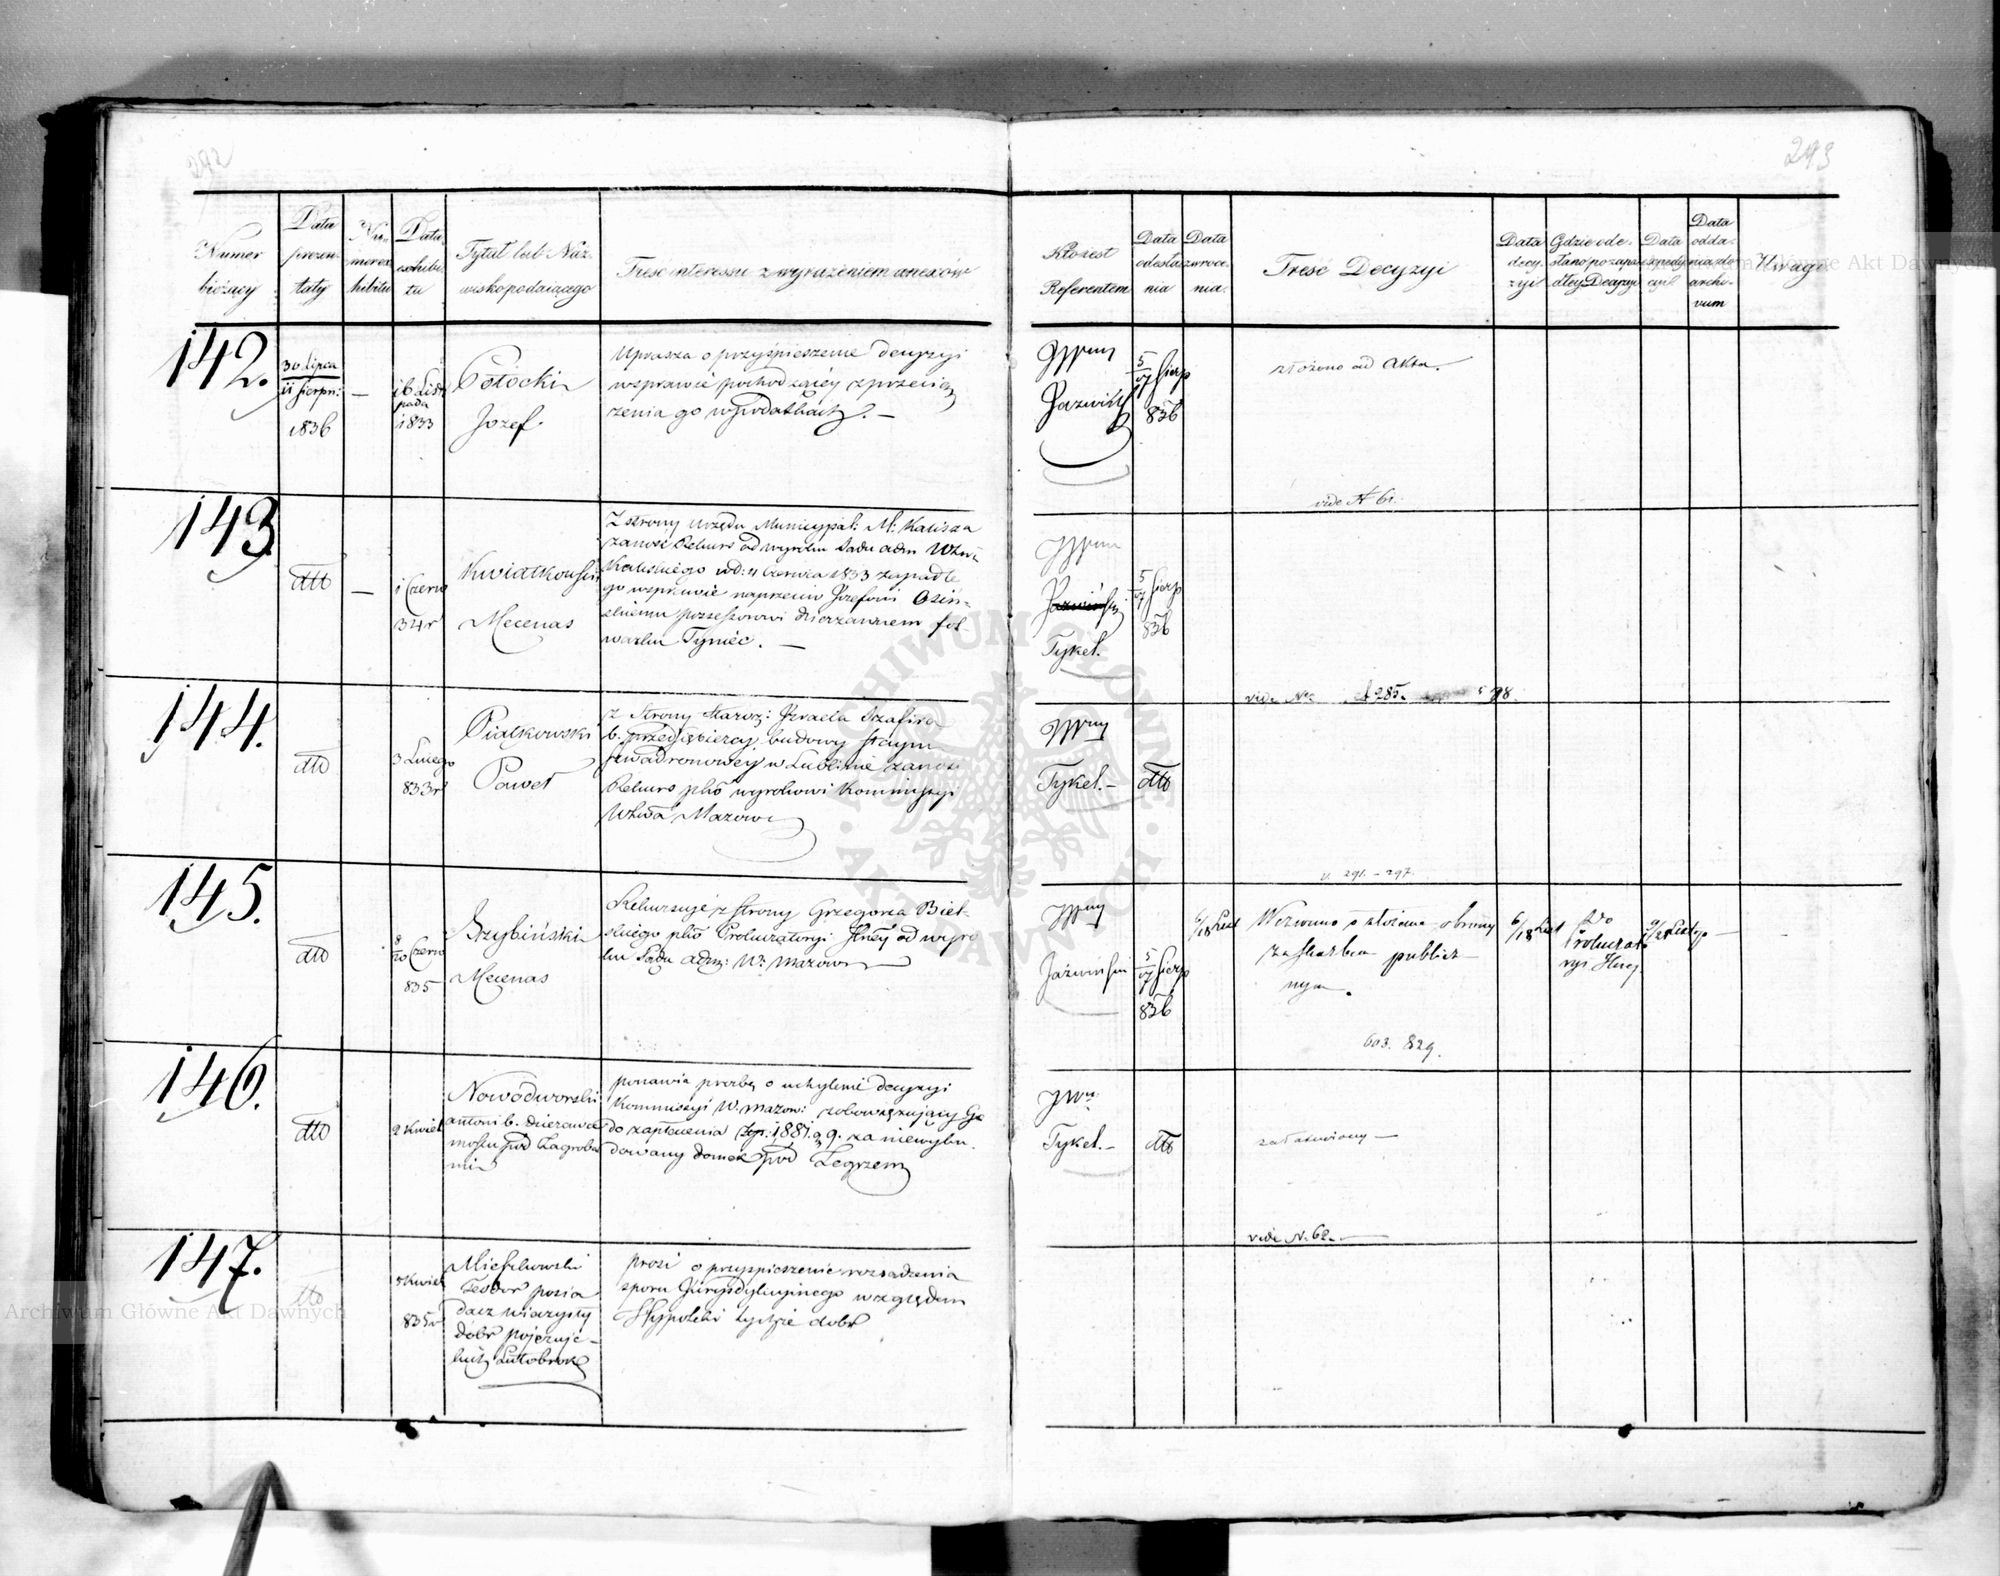 292
Numer
bieżący
Data
prezen-
taty
Nu-
mer ex
hibitu
Data
exhibi-
tu
Tytuł lub Naz-
wisko podaiącego
Treść interessu z wyrażeniem anexów
142.
30 Lipca
11 Sierpn:
1836
—
16 Listo
pada
1833
Potocki
Jozef.
Uprasza o przyśpieszenie decyzyi
w sprawie pochodzącéy z przecią
żenia go w podatkach. —
143
dtto
—
1 Czerw
34 r
Kwiatkowski
Mecenas
Z strony Urzędu Municypal: M. Kalisza
zanosi Rekurs od wyroku Sadu adm Wztwa
Kaliskiego w d: 11 Czerwca 1833 zapadłe
go w sprawie naprzeciw Jozefowi Osiń-
skiemu possessorowi dzierzawnem fol
warku Tyniec. —
144.
dtto
3 Lutego
833 r
Piątkowski
Paweł
z strony staroz: Izraela Szafira
b. przedsiębiercy budowy stayni
szwadronowey w Lublinie zanosi
Rekurs plko wyrokowi Kommissyi
Wztwa Mazowi
145.
dtto
8/20 Czerw
835
Brzybiński
Mecenas
Rekursuje z strony Grzegorza Biel-
skiego plko Prokuratoryi Jlnéy od wyro
ku Sądu admi: W. Mazow
146.
dtto
2 Kwiet
Nowodworski
antoni b. dzierzawca
mostu pod Zagroba
mi
ponawia prozbę o uchylenie decyzyi
Kommissyi W. Mazow: zobowiązującéy Go
do zapłacenia złp: 1881 g 9. za niewybu
dowany domek pod Zegrzem
147.
dtto
8 Kwiet
835 r
Teodor posia
dacz wieczysty
dóbr pojezuic-
kich
prosi o przyspieszenie rozsądzenia
sporu Jurysdykcyjnego względem
Hypoteki tychże dobr
293
Któż jest
Referentem
Data
odesła
nia
Data
zwróce-
nia.
Treść Decyzyi
Data
decy-
zyi
Gdzie ode-
słano po zapa-
dłey Decyzyi
Data
expedy
cyi
Data
odda-
nia do
archi-
vum
Uwagi
Jaźwiński
5/17 Sierp
836
złożono ad akta.
vide N 61.
Jaźwiński
Tykel.
5/17 Sierp
836
vide No 285. 98.
Tykel. —
dtto
v. 291. — 297.
Jaźwiński
5/17 Sierp
836
6/18 List
Wezwano o złożenie obrony
za skarbem publicz-
nym.
6/18 List
Do
Prokurato
ryi Jlney
9/21 Listop
—
603. 829.
JWn
Tykel. —
dtto
załatwiony —
vide N. 62. —
Archiwum Główne Akt Dawnych
Archiwum Główne Akt Dawnych
ARCHIWUM GŁÓWNE AKT DAWNYCH